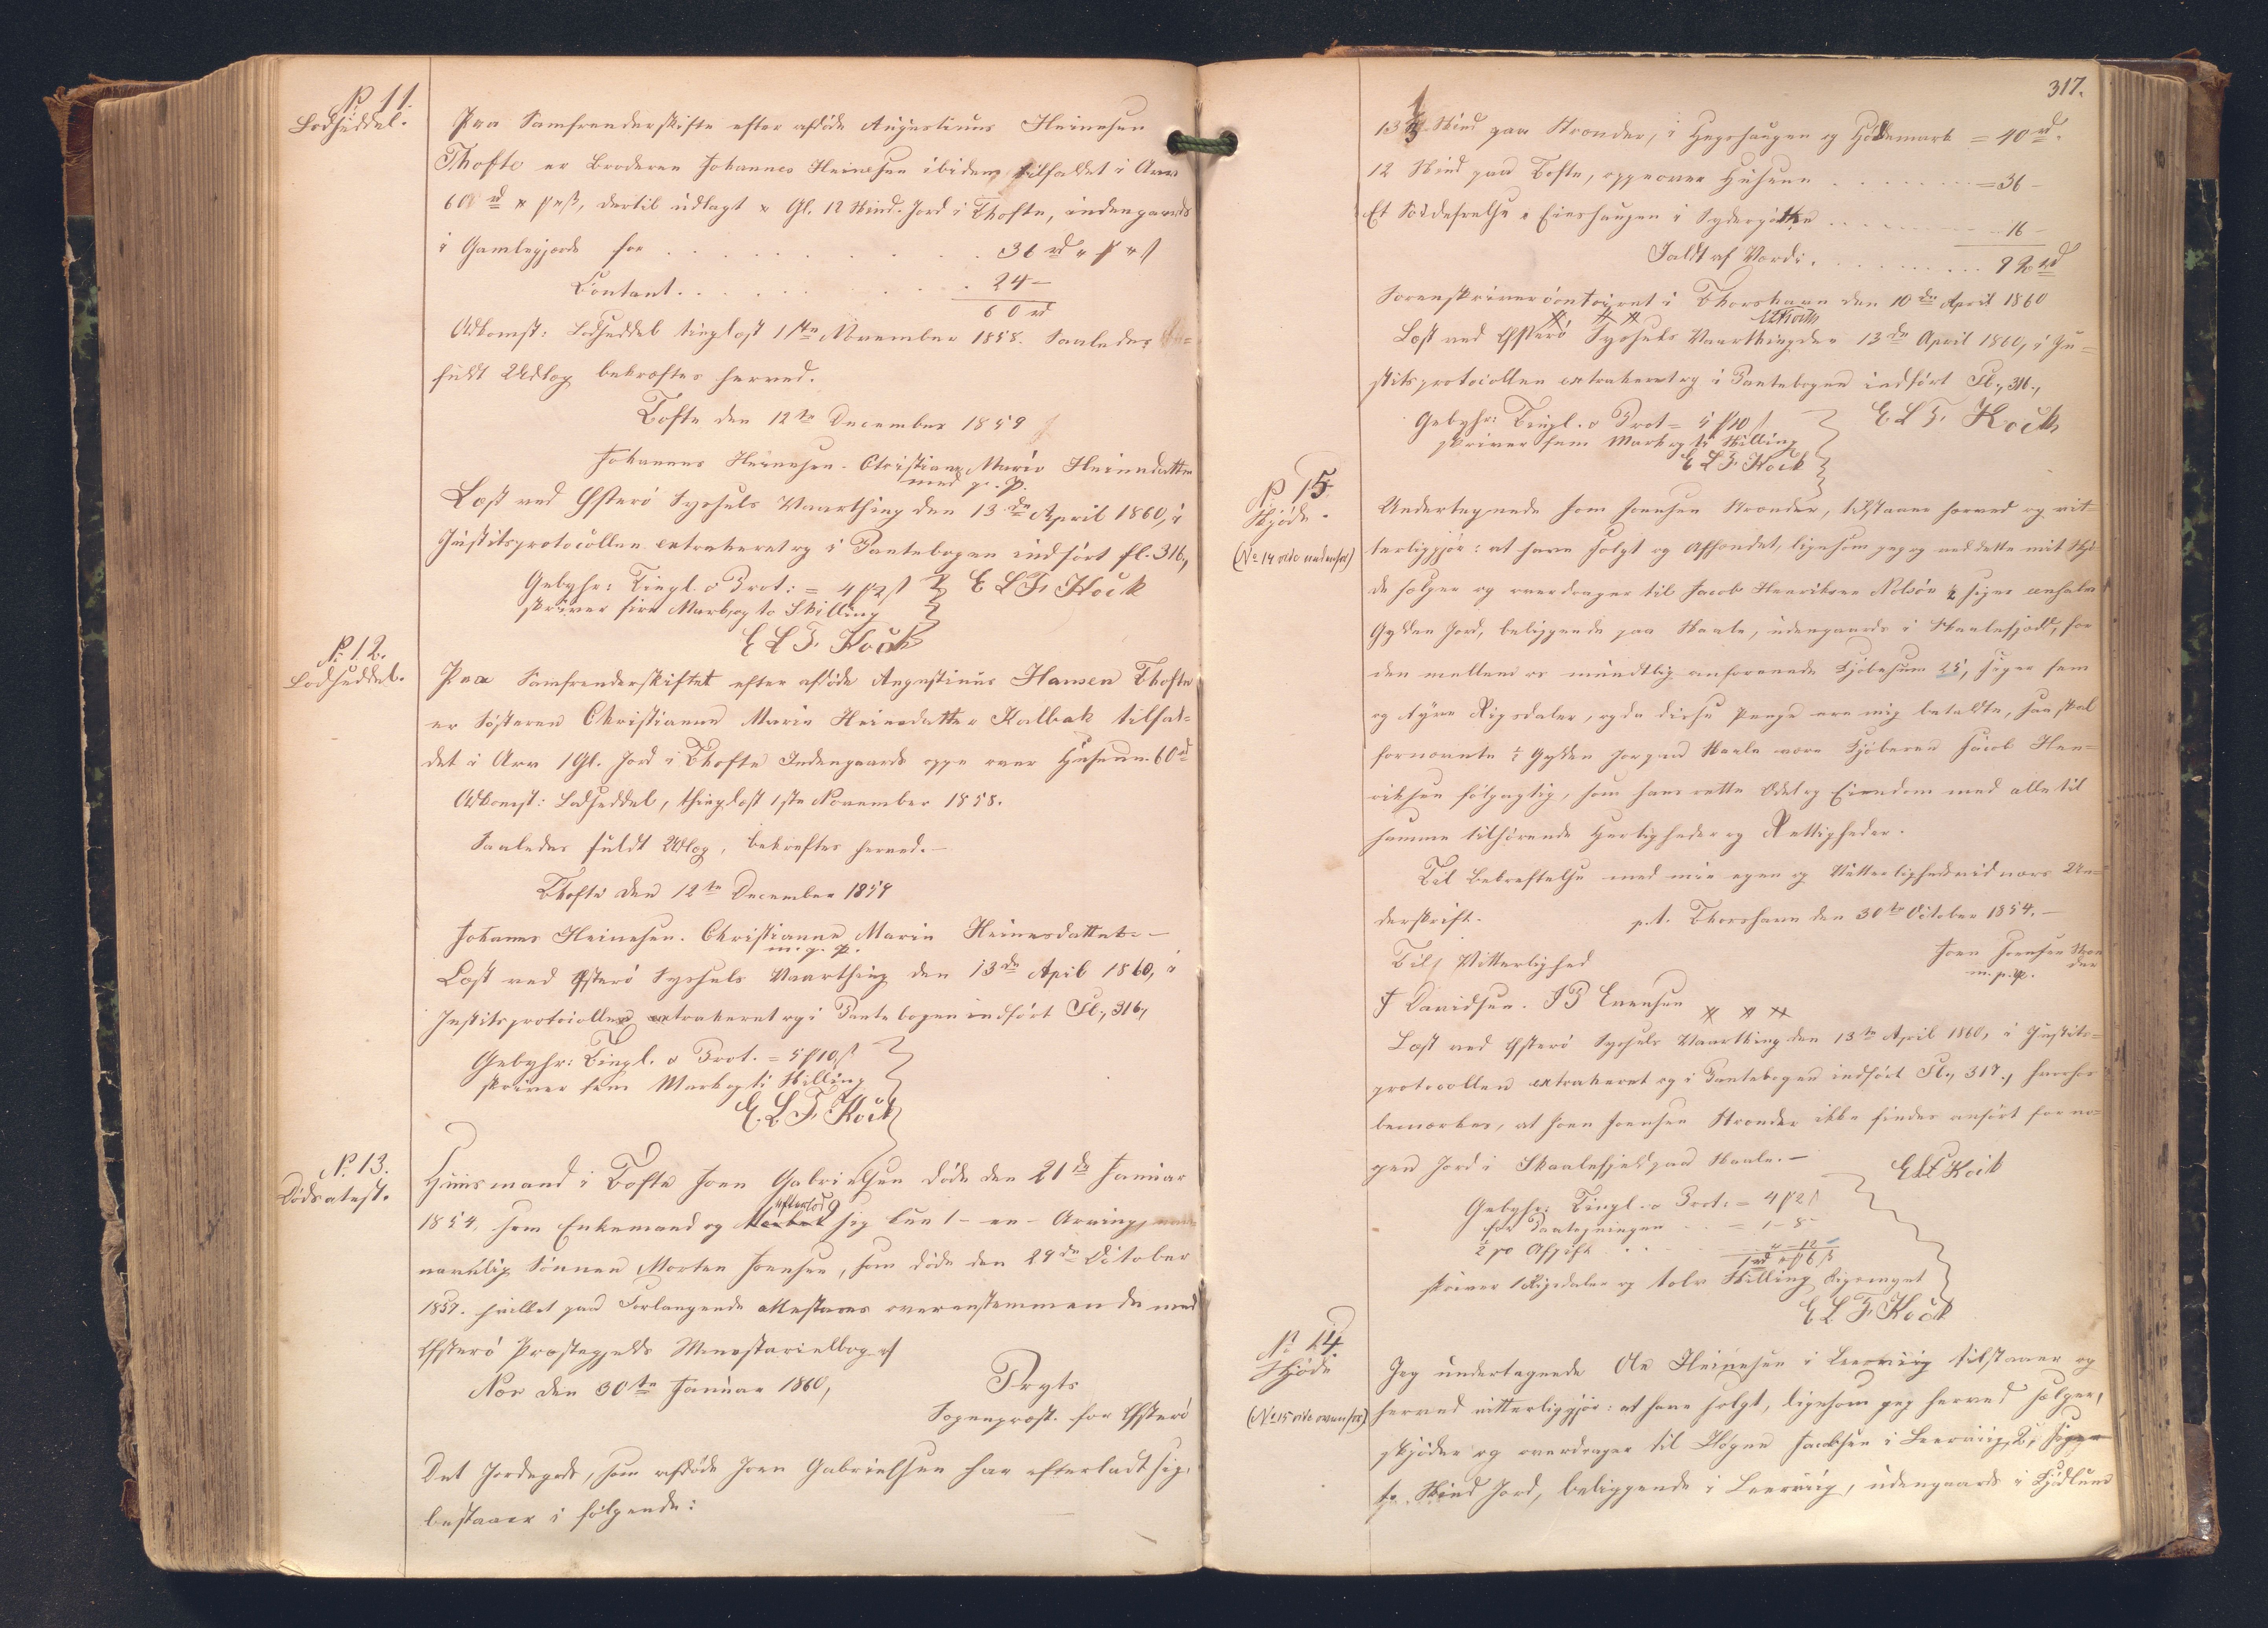 N° 11.
Lodseddel.
Paa Samfrænderskifte efter afdöde Augustinus Heinesen
Thofte er Broderen Johannes Heinesen ibidem tilfaldet i Arv
60 rd " ß " ß, dertil udlagt " Gl. 12 Skind Jord i Thofte, indengaards
i Gamlegjærde for . . . . . . . . . . 36 rd " ß " ß
Contant. . . . . . . . . . . 24 —
60 rd
Adkomst: Lodseddel tinglæst 1ste November 1858. Saaledes
fuldt Udlæg bekræftes herved.
Tofte den 12te December 1859
Johannes Heinesen. Christiane Marie Heinesdatter
med p. P.
Læst ved Österö Syssels Vaarthing den 13de April 1860, i
Justitsprotocollen extraheret og i Pantebogen indfört fl. 316,
Gebyhr: Tingl. o Prot: = 4 ß 2 ß E L T. Kock
skriver fire Mark og to Skilling
E L T. Kock
N° 12.
Lodseddel.
Paa Samfrænderskiftet efter afdöde Augustinus Hansen Thofte
er Sösteren Christianne Marie Heinesdatter Kalbak tilfal=
det i Arv 1 Gl. Jord i Thofte Indengaards oppe over Husene. 60 rd
Adkomst: Lodseddel, thinglæst 1ste November 1858.
Saaledes fuldt Udlæg, bekræftes herved. —
Thofte den 12te December 1859
Johannes Heinesen. Christianne Marie Heinesdatter —
m. p. P.
Læst ved Österö Syssels Vaarthing den 13de April 1860, i
Justitsprotocollen extraheret og i Pantebogen indfört Fl., 316,
Gebyhr: Tingl. o Prot. = 5 ß 10 ß
skriver fem Mark og ti Skilling
E. L T. Kock
N° 13.
Dödsatest.
Huusmand i Tofte Joen Gabrielsen döde den 21de Januar
1854, som Enkemand og efterlod sig kun 1 - en - Arving,
navnlig Sönnen Morten Joensen, som döde den 29de October
1857. hvilket paa Forlangende attesteres overensstemmende med
Österö Præstegjelds Ministerialbog af
Næs den 30te Januar 1860,
Pryts
Sognepræst for Österö
Det Jordegods, som afdöde Joen Gabrielsen har efterladt sig,
bestaaer i fölgende:
317.
13 1/3 Skind paa Strænder, i Hegshaugen og = 40 rd.
12 Skind paa Tofte, oppe over Husene . . . . . . . = 36 —
Et i Eirshaugen i Sydergöthe . . . . . . . 16 —
Ialdt af Værdi. . . . . . . . . . 92 rd
Sorenskrivercontoiret i Thorshavn den 10de April 1860
Læst ved Österö Syssels Vaarthing den 13de April 1860, i Ju=
stitsprotocollen extraheret og i Pantebogen indfört Fl., 316.,
Gebyhr: Tingl. o Prot = 5 ß 10 ß E L T. Kock
skriver fem Mark og ti Skilling
E L T. Kock
N° 15
Skjöde.
(No 14 vide nedenfor)
Undertegnede Joen Joensen Strænder, tilstaaer herved og vit=
terliggjör: at have solgt og afhændet, ligesom jeg og ved dette mit Skjö=
de sælger og overdrager til Jacob Henriksen Nolsöe ½ siger en halv
Gylden Jord, beliggende paa Skaale, udengaards i Skaalefjeld, for
den mellem os mundtlig Kjöbesum 25, siger fem
og tyve Rigsdaler, og da disse Penge ere mig betalte, saa skal
fornævnte ½ Gylden Jord paa Skaale være Kjöberen Jacob Hen=
riksen fölgagtig, som hans rette Odel og Eiendom med alle til
samme tilhörende Herligheder og Rettigheder.
Til Bekræftelse med min egen og Vitterlighedsvidners Un=
derskrift. p. t. Thorshavn den 30te October 1854. —
Joen Joensen Stræn
der
m. p. P.
Til Vitterlighed
J Davidsen. I P Evensen
Læst ved Österö Syssels Vaarthing den 13de April 1860, i Justits=
protocollen extraheret og i Pantebogen indfört Fl., 317., hvorhos
bemærkes, at Joen Joensen Strænder ikke findes anfört for no=
gen Jord i Skaalefjeld paa Skaale. —
E L T Kock
Gebyhr: Tingl. o Prot: = 4 ß 2 ß
for Paategningen . . = 1 - 8 -
½ pc Afgift . . . " - 12 -
1 rd " ß 6 ß
skriver 1 Rigsdaler og tolv Skilling Rigsmynt
E L T. Kock
N° 14.
Skjöde
(No 15 vide ovenfor)
Jeg undertegnede Ole Heinesen i Leervig tilstaaer og
herved vitterliggjör: at have solgt, ligesom jeg herved sælger,
skjöder og overdrager til Högne Jacobsen i Leerviig, 2, siger
to Skind Jord, beliggende i Leerviig, udengaards i